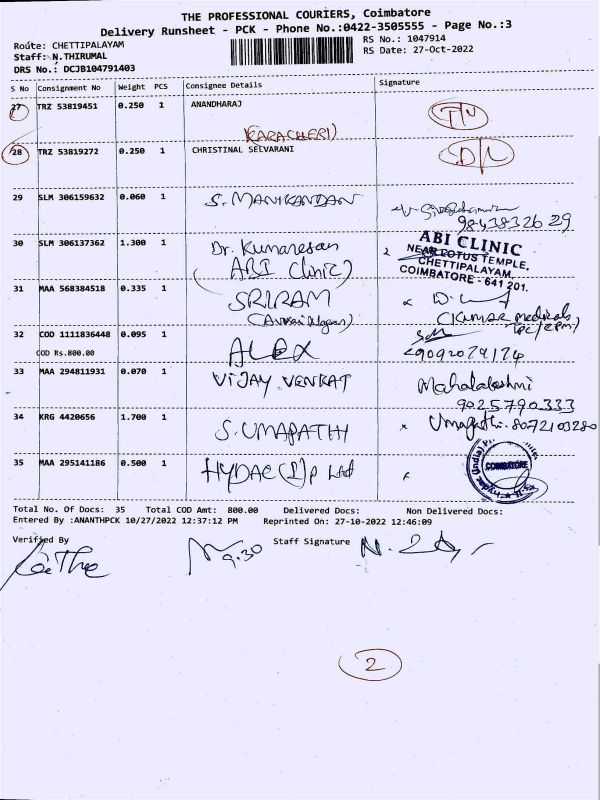 THE PROFESSIONAL COURIERS, Coimbatore
Delivery Runsheet - PCK - Phone No.:0422-3505555 - Page No.:3
Route: CHETTIPALAYAM
RS No.: 1047914
Staff: N.THIRUMAL
RS Date: 27-Oct-2022
DRS No.: DCJB104791403
S No Consignment No Weight PCS Consignee Details Signature
27 TRZ 53819451 0.250 1 ANANDHARAJ
28 TRZ 53819272 0.250 1 CHRISTINAL SELVARANI
29 SLM 306159632 0.060 1 S. MANIKANDAN
98438326 29
30 SLM 306137362 1.300 1 Dr. Kumaresan
(ABI Clinic)
ABI CLINIC
NEAR LOTUS TEMPLE,
CHETTIPALAYAM,
COIMBATORE - 641 201.
31 MAA 568384518 0.335 1 SRIRAM
32 COD 1111836448 0.095 1 ALEX
COD Rs.800.00
33 MAA 294811931 0.070 1 VIJAY VENKAT Mahalakshmi
9025790333
34 KRG 4420656 1.700 1 S. UMAPATHI Umapathi. 8072103280
35 MAA 295141186 0.500 1 HYDAC (I) P Ltd
COIMBATORE
Total No. Of Docs: 35 Total COD Amt: 800.00 Delivered Docs: Non Delivered Docs:
Entered By :ANANTHPCK 10/27/2022 12:37:12 PM Reprinted On: 27-10-2022 12:46:09
Verified By Staff Signature
9.30
2